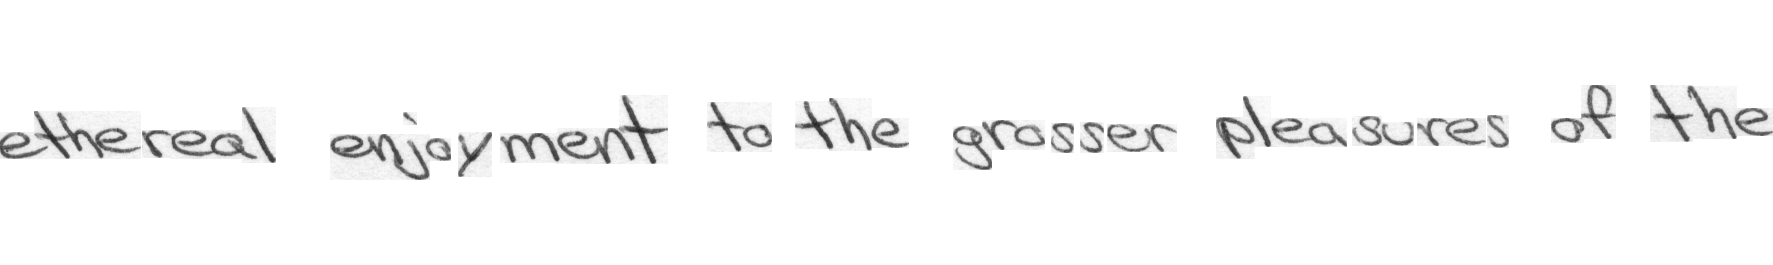 ethereal enjoyment to the grosser pleasures of the